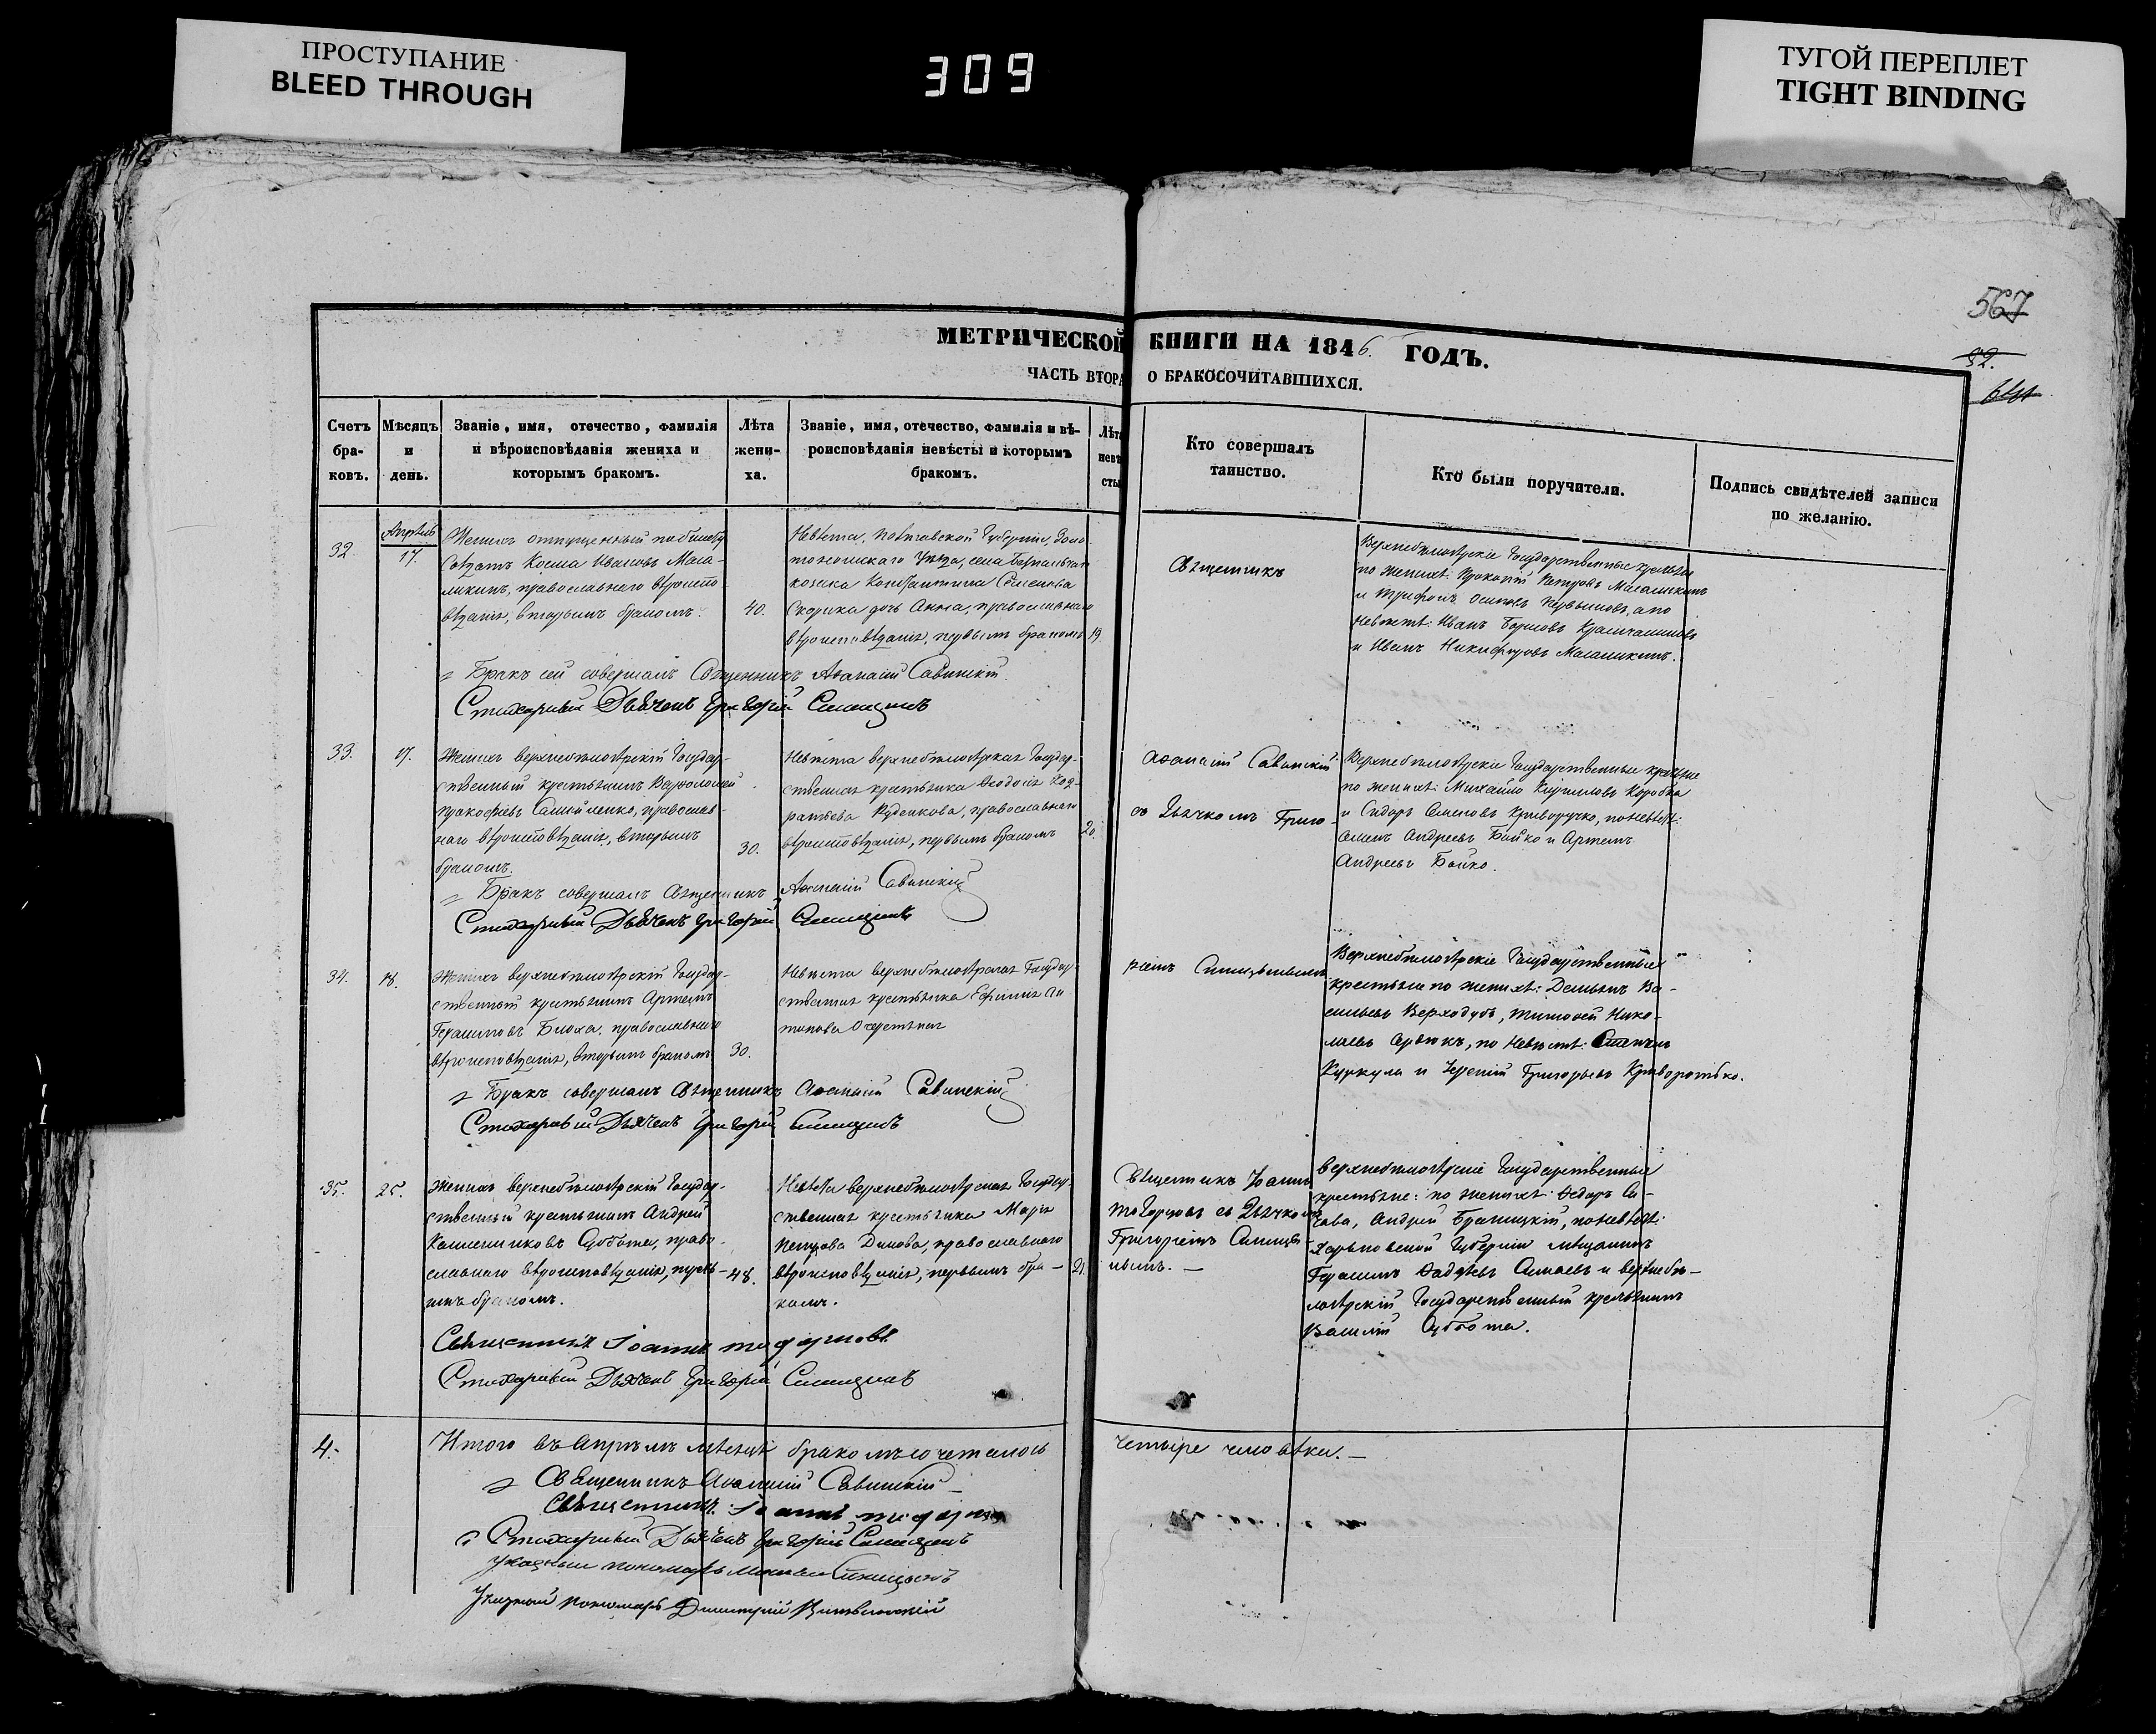 ПРОСТУПАНИЕ
BLEED THROUGH
309
ТУГОЙ ПЕРЕПЛЕТ
TIGHT BINDING
567
32.
МЕТРИЧЕСКОЙ КНИГИ НА 1846. ГОДЪ.
ЧАСТЬ ВТОРА О БРАКОСОЧИТАВШИХСЯ.
Счетъ
бра-
ковъ.
Мѣсяцъ
и
день.
Званіе, имя, отечество, фамилія
и вѣроисповѣданія жениха и
которымъ бракомъ.
Лѣта
жени-
ха.
Званіе, имя, отечество, фамилія и вѣ-
роисповѣданія невѣсты и которымъ
бракомъ.
Лѣта
невѣ
сты
Кто совершалъ
таинство.
Кто были поручители.
Подпись свидѣтелей записи
по желанію.
32.
Апрѣль
17.
Женихъ отпущенный по билету
Солдатъ Косма Ивановъ Маса-
ликинъ, православнаго вѣроиспо-
вѣданія, вторымъ бракомъ.
40.
Невѣста, Полтавской Губерніи, Золо-
тоношскаго Уѣзда, села
козака Константина Семенова
Скорика дочь Анна, православнаго
вѣроисповѣданія, первымъ бракомъ
19.
Священникъ
Верхнебѣлозѣрскіе Государственные крестьяне
по женихѣ: Прокопій Петровъ Масаликинъ
и Трифонъ Осиповъ а по
невѣстѣ: Иванъ Борисовъ
и Иванъ Никифоровъ Масаликинъ.
Бракъ сей совершалъ Священникъ Аѳанасій Савинскій
Стихарный Дьячекъ Григорій Синицынъ
33.
17.
Женихъ верхнебѣлозѣрскій Государ-
ственный крестьянинъ Варѳоломей
Прокофьевъ Самойленко, православ-
наго вѣроисповѣданія, вторымъ
бракомъ.
30.
Невѣста верхнебѣлозѣрская Государ-
ственная крестьянка Ѳеодосія Код-
ратьева Руденкова, православнаго
вѣроисповѣданія, первымъ бракомъ
20.
Аѳанасій Савинскій
со Дьячкомъ Григо-
Верхнебѣлозѣрскіе Государственные крестьяне
по женихѣ: Михайло Кирилловъ Коробка
и Сидоръ Семеновъ Криворучко, по невѣстѣ:
Семенъ Андреевъ Бойко и Артемъ
Андреевъ Бойко.
Бракъ совершалъ Священникъ Аѳанасій Савинскій
Стихарный Дьячекъ Григорій Синицынъ
34.
18.
Женихъ верхнебѣлозѣрскій Государ-
ственный крестьянинъ Артемъ
Герасимовъ Блоха, православнаго
вѣроисповѣданія, вторымъ бракомъ
30.
Невѣста верхнебѣлозѣрская Государ-
ственная крестьянка Ефимія Ан
тонова
ріемъ Синицынымъ
Верхнебѣлозѣрскіе Государственные
крестьяне по женихѣ: Демьянъ Ва-
сильевъ Верходубъ, Тимоѳей Нико-
лаевъ Сердюкъ, по Невѣстѣ: Степанъ
Куркула и Григорьевъ Криворотько.
Бракъ совершалъ Священникъ Аѳанасій Савинскій
Стихарный Дьячекъ Григорій Синицынъ
35.
25.
Женихъ верхнебѣлозѣрскій Государ-
ственный крестьянинъ Андрей
Калинниковъ Суббота, право-
славнаго вѣроисповѣданія, первы-
мъ бракомъ.
48.
Невѣста верхнебѣлозѣрская Государ-
ственная крестьянка Марія
Петрова Динова, православнаго
вѣроисповѣданія, первымъ бра-
комъ.
21.
Священникъ Іоаннъ
съ Дьячкомъ
Григоріемъ Синицы-
нымъ.
Верхнебѣлозѣрскіе Государственные
крестьяне: по женихѣ: Ѳедоръ Са-
Андрей Браницкій, по невѣстѣ:
Харьковской Губерніи мѣщанинъ
Герасимъ Ѳадѣевъ и верхнебѣ-
лозѣрскій Государственный крестьянинъ
Василій Суббота.
Священникъ Іоаннъ
Стихарный Дьячекъ Григорій Синицынъ
4.
Итого въ Апрѣлѣ мѣсяцѣ бракомъ сочеталось четыре человѣка.
Священникъ Аѳанасій Савинскій
Священникъ Іоаннъ
Стихарный Дьячекъ Григорій Синицынъ
Указный пономарь Синицынъ
Указный пономарь Димитрій